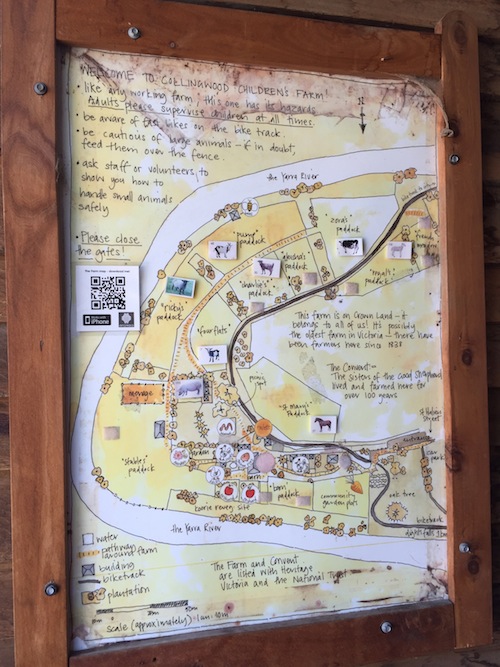 WELCOME TO COLLINGWOOD CHILDREN'S FARM!
• like any working farm, this one has its hazards.
Adults please supervise children at all times.
• be aware of fast bikes on the bike track.
• be cautious of large animals – & in doubt,
feed them over the fence.
• ask staff or volunteers, to
show you how to
handle small animals
safely
• Please close
the gates!
N
the Yarra River
"pump"
paddock
zora's
paddock
paddock
"charlie's"
paddock
"ricky's"
paddock
"four flats"
This farm is on Crown Land – it
belongs to all of us! It's possibly
the oldest farm in Victoria – there have
been farmers here since 1838
The Convent –
The sisters of the Good Shepherd
lived and farmed here for
over 100 years
picnic
spot
menage
"St Mary's"
Paddock
St Heliers
Street
entrance
car
park
"stables"
paddock
"barn"
paddock
community
garden plots
oak tree
biketrack
koorie reveg site
the Yarra River
water
pathway
around farm
building
biketrack
plantation
The Farm and Convent
are listed with Heritage
Victoria and the National Trust
scale (approximately) 1cm:10m
iPhone